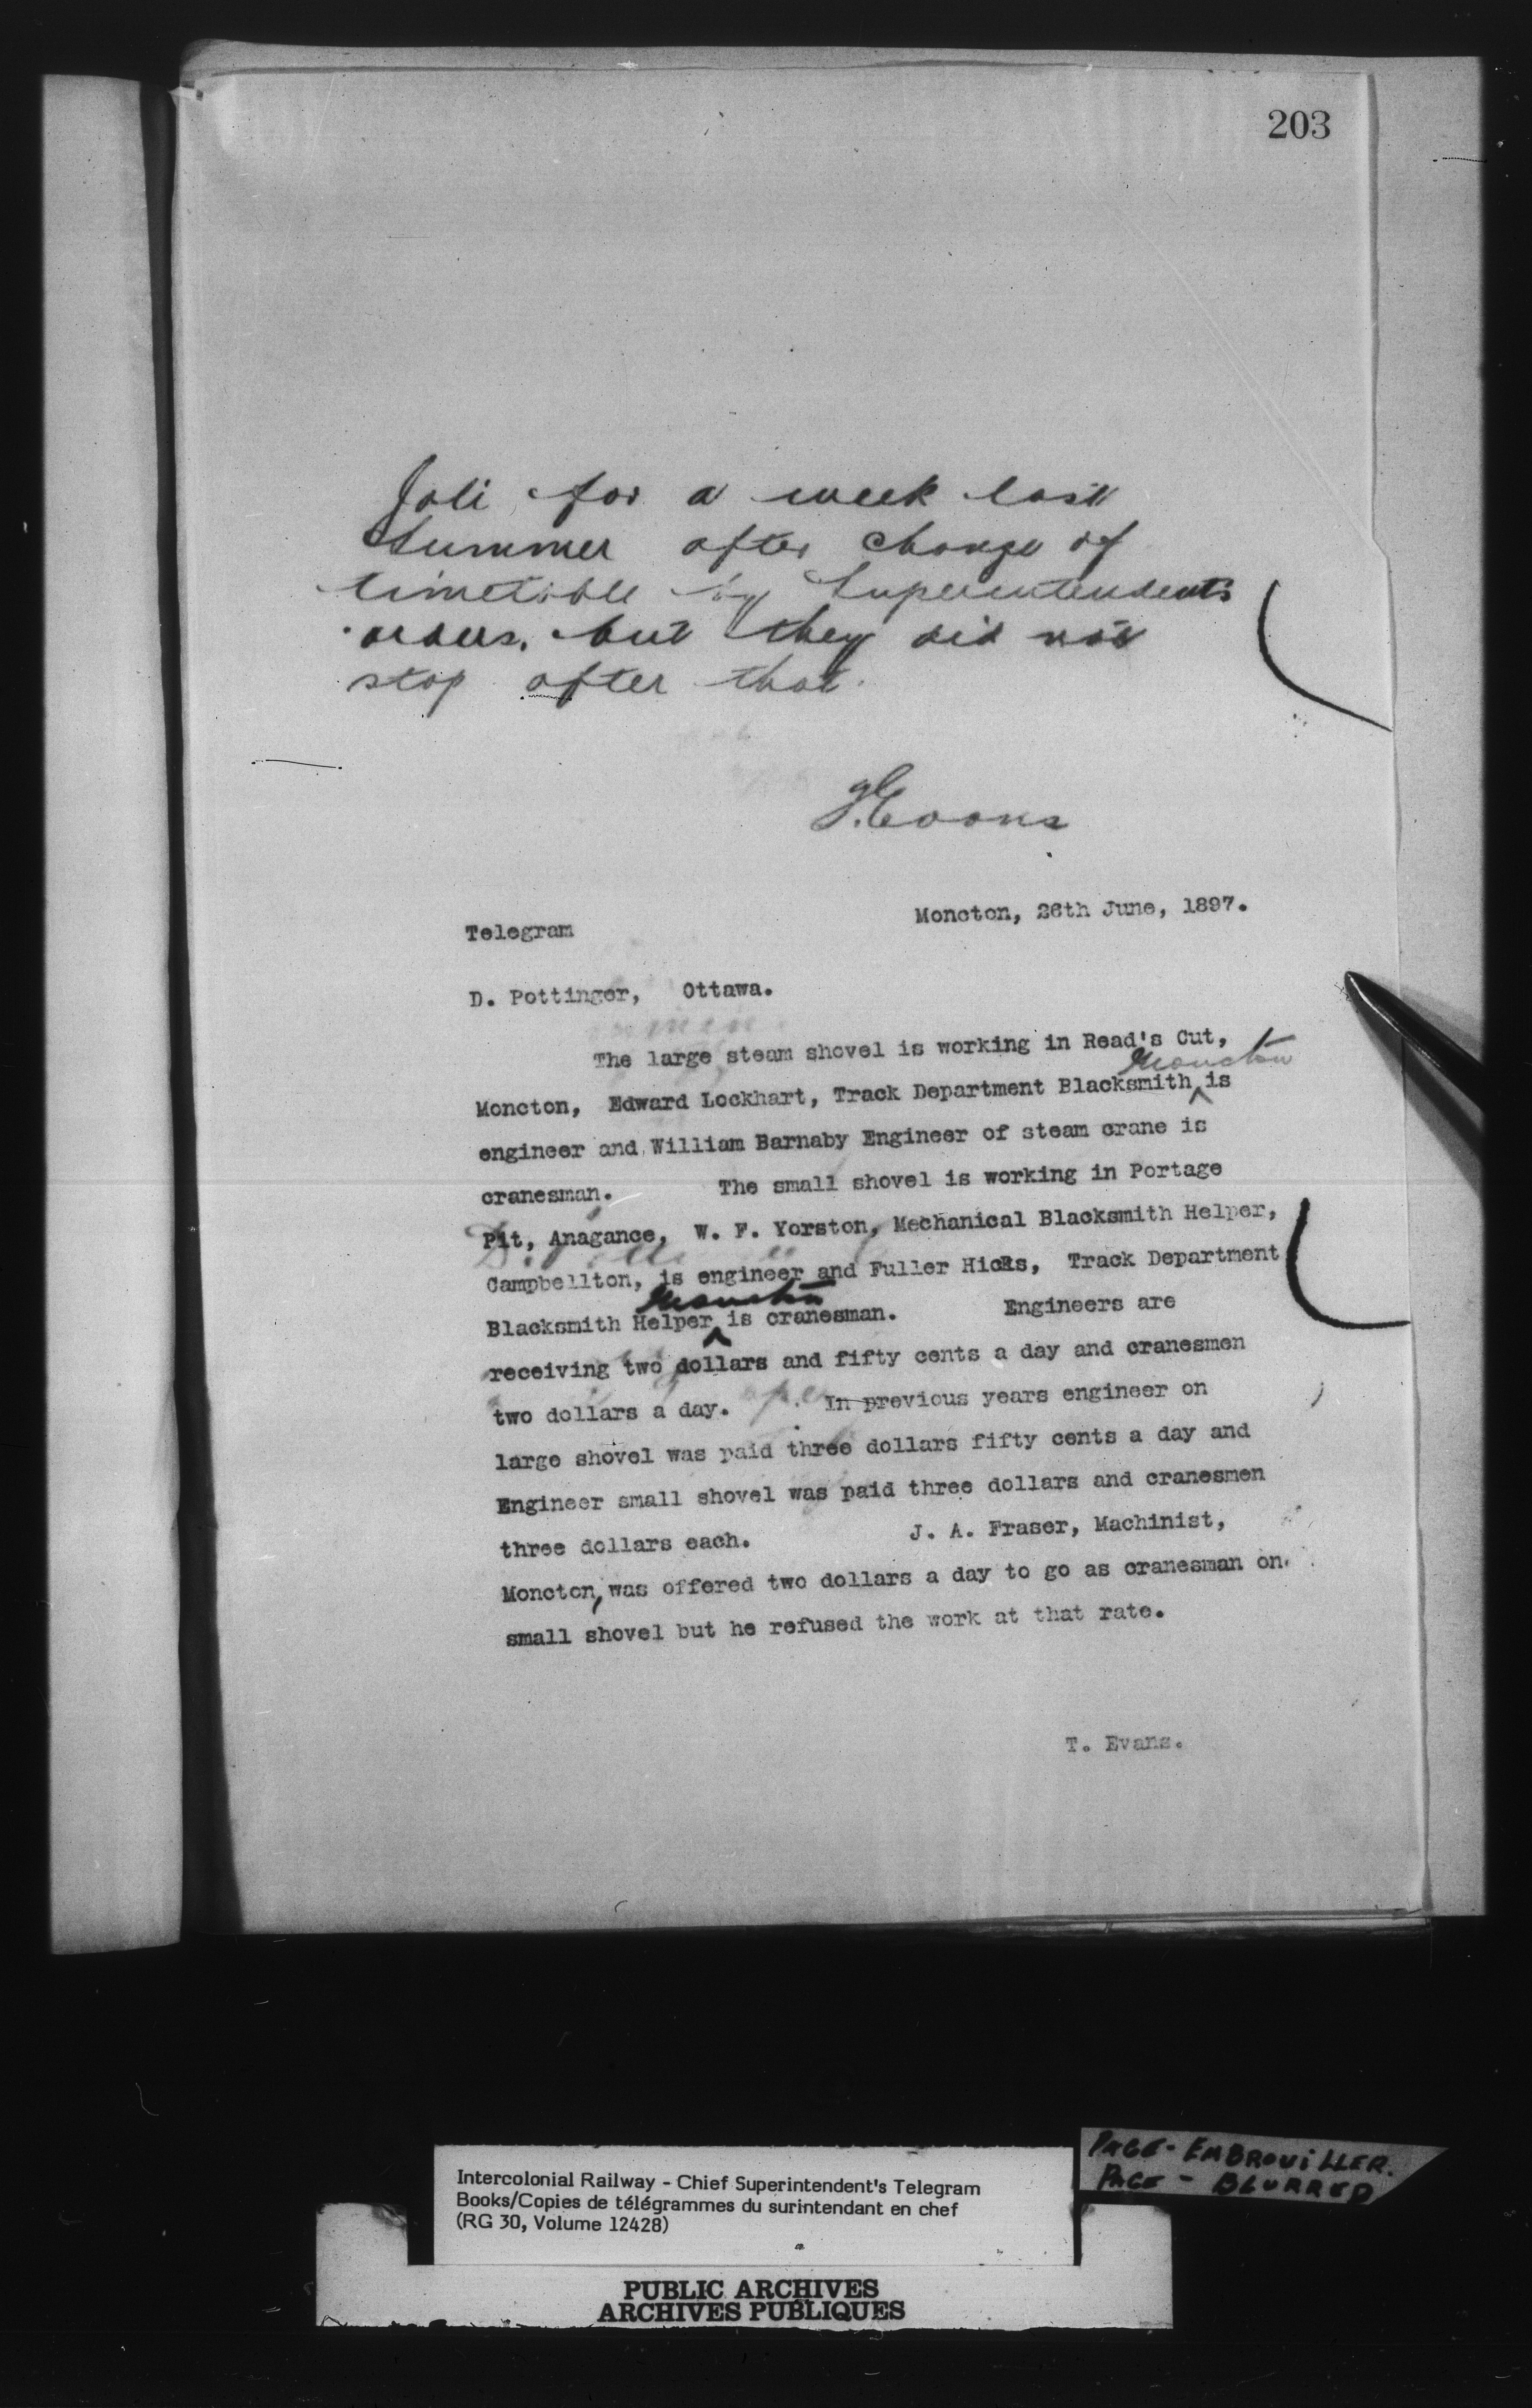 203
Joli for a week last
Summer after change of
timetable by Superintendents
orders. but they did not
stop after that.
T. Evans
Moncton, 26th June, 1897.
Telegram
D. Pottinger, Ottawa.
The large steam shovel is working in Read's Cut,
Moncton, Edward Lockhart, Track Department Blacksmith Moncton is
engineer and William Barnaby Engineer of steam crane is
cranesman. The small shovel is working in Portage
Pit, Anagance, W. F. Yorston, Mechanical Blacksmith Helper,
Campbellton, is engineer and Fuller Hicks, Track Department
Blacksmith Helper Moncton is cranesman. Engineers are
receiving two dollars and fifty cents a day and cranesmen
two dollars a day. In previous years engineer on
large shovel was paid three dollars fifty cents a day and
Engineer small shovel was paid three dollars and cranesmen
three dollars each. J. A. Fraser, Machinist,
Moncton, was offered two dollars a day to go as cranesman on
small shovel but he refused the work at that rate.
T. Evans.
PAGE - EMBROUILLER.
PAGE - BLURRED
Intercolonial Railway - Chief Superintendent's Telegram
Books/Copies de télégrammes du surintendant en chef
(RG 30, Volume 12428)
PUBLIC ARCHIVES
ARCHIVES PUBLIQUES